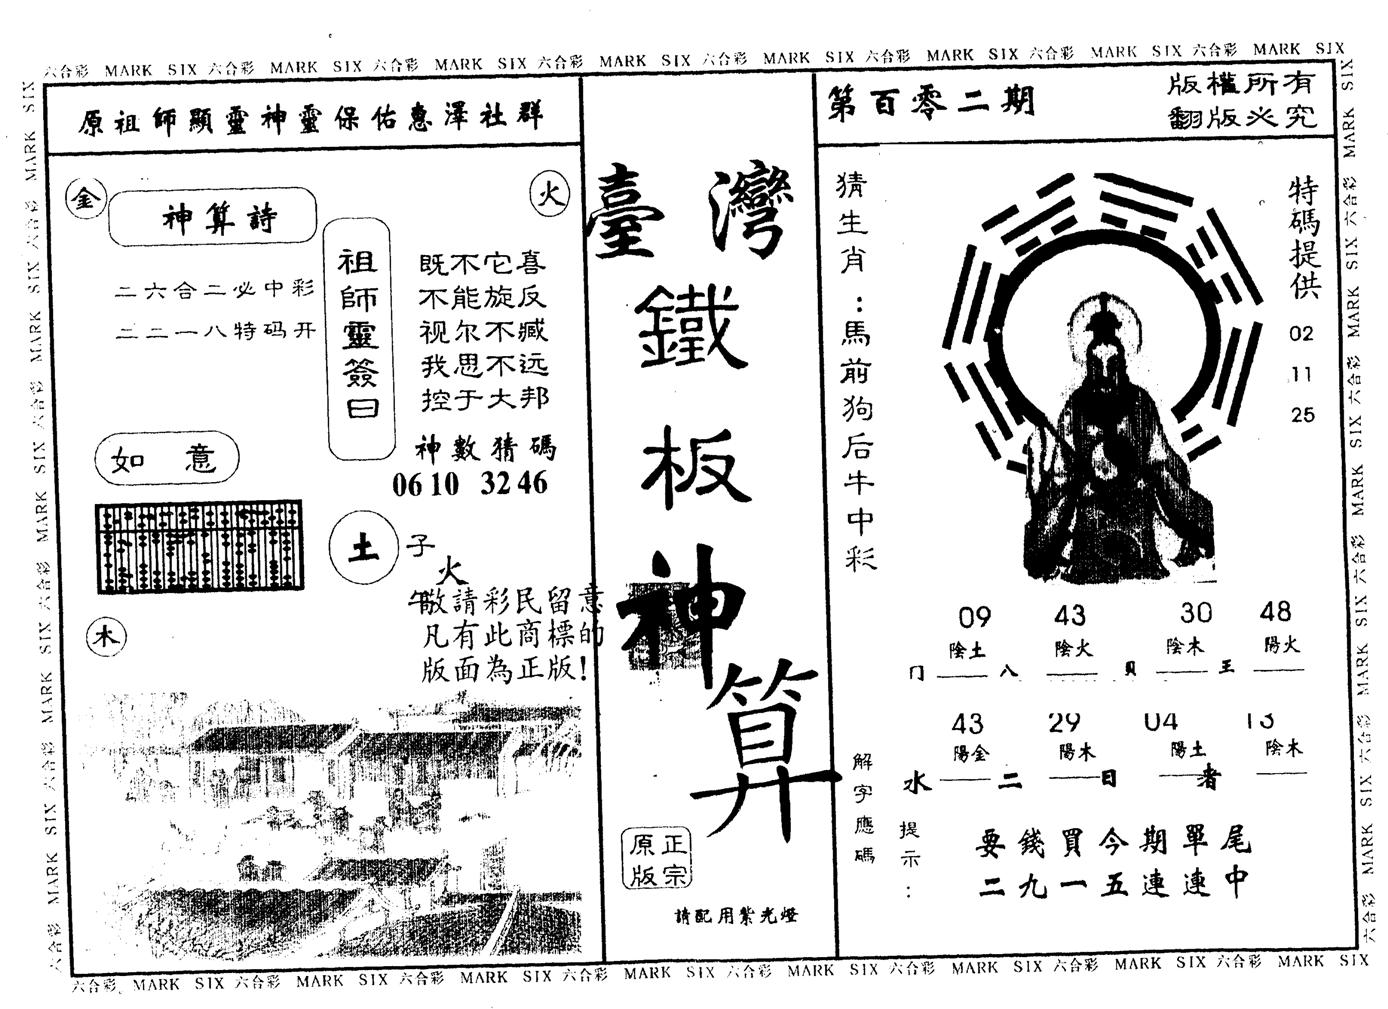 六合彩 MARK SIX 六合彩 MARK SIX 六合彩 MARK SIX 六合彩 MARK SIX 六合彩 MARK SIX 六合彩 MARK SIX 六合彩 MARK SIX 六合彩 MARK SIX
原祖師顯靈神靈保佑惠澤社群
金
火
神算詩
二六合二必中彩
二二一八特码开
祖師靈簽曰
既不它喜
不能旋反
视尔不臧
我思不远
控于大邦
神數猜碼
06 10 32 46
如意
土
子
火
午
敬請彩民留意
凡有此商標的
版面為正版!
木
臺灣
鐵
板
神
算
正宗
原版
請配用紫光燈
第百零二期
版權所有
翻版必究
猜生肖:馬前狗后牛中彩
特碼提供
02
11
25
09 43 30 48
陰土 陰火 陰木 陽火
冂 八 貝 王
43 29 04 13
陽金 陽木 陽土 陰木
水 二 日 者
解字應碼
提示:
要錢買今期單尾
二九一五連連中
六合彩 MARK SIX 六合彩 MARK SIX 六合彩 MARK SIX 六合彩 MARK SIX 六合彩 MARK SIX 六合彩 MARK SIX 六合彩 MARK SIX 六合彩 MARK SIX